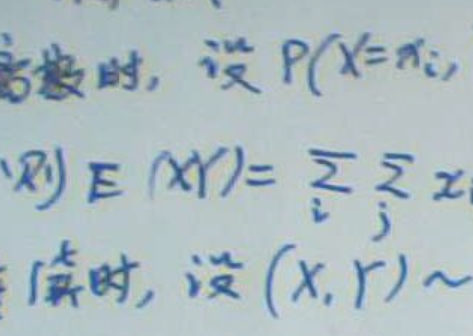 离散时, 设 P(X=x_i,
则 E(XY)= Σ_i Σ_j x
时, 设 (X, Y) ~